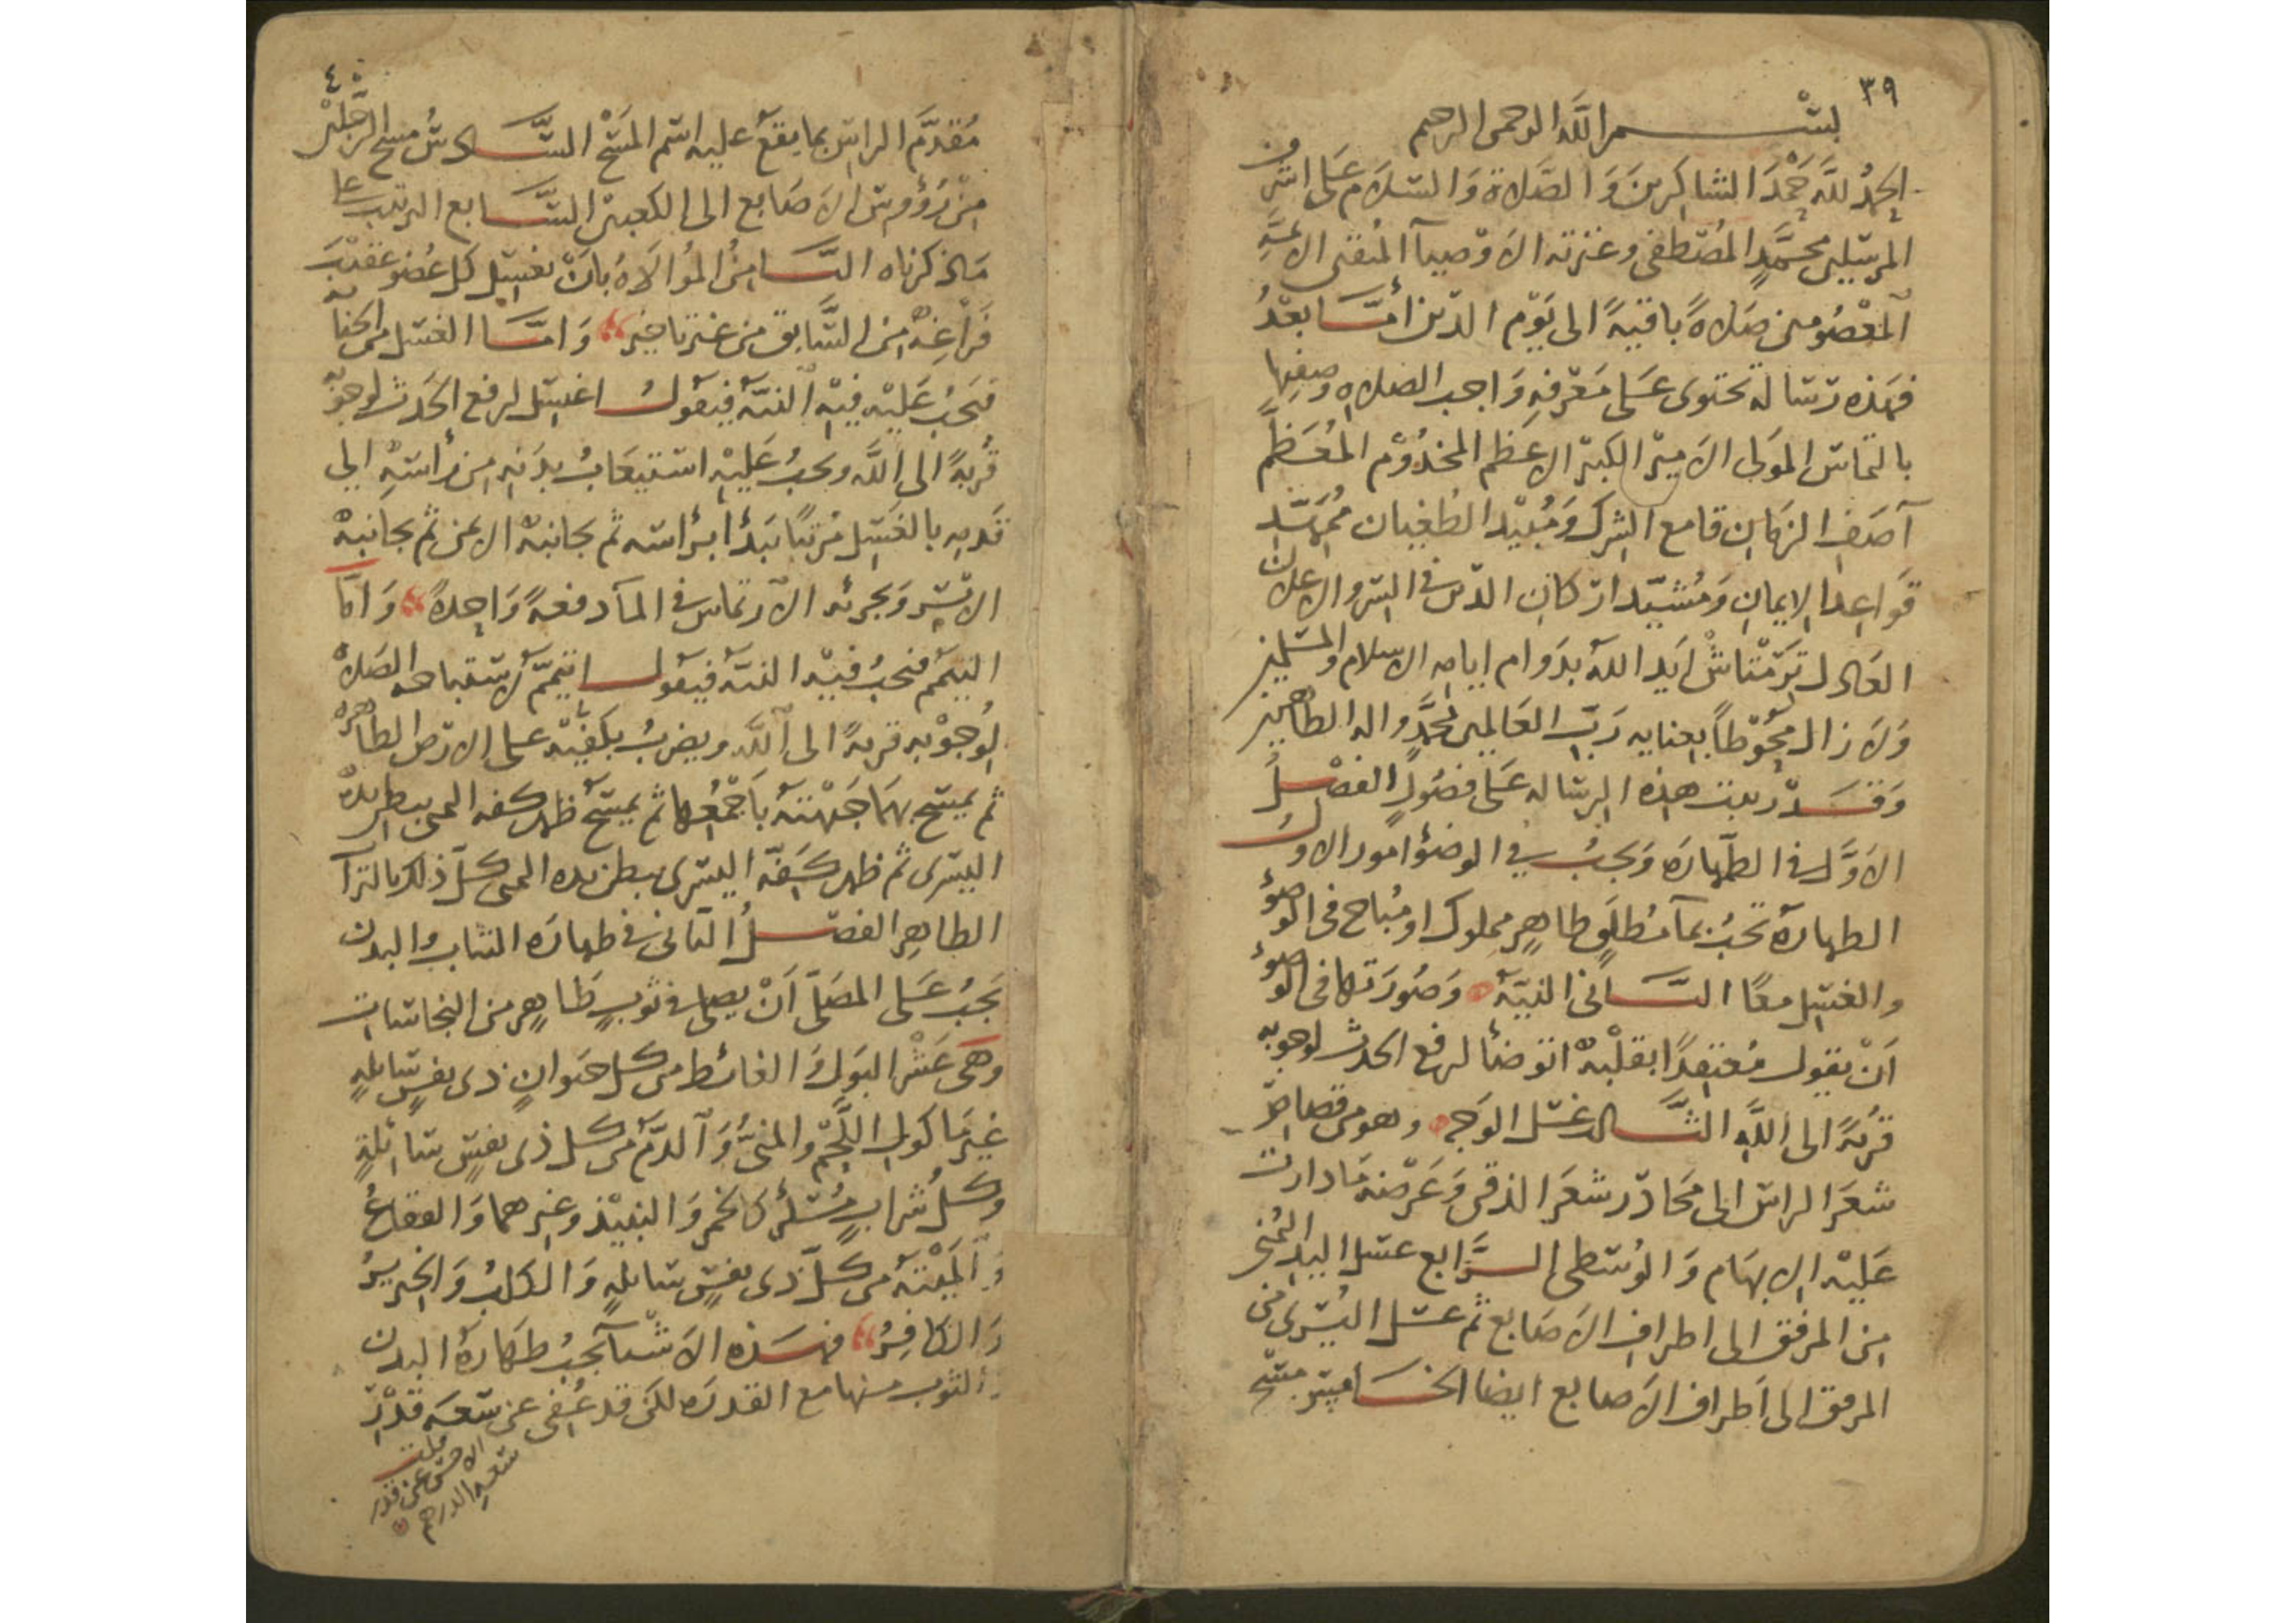 ٣٩
بسم الله الرحمن الرحيم
الحمد لله حمد الشاكرين والصلاة والسلام على اشرف
المرسلين محمد المصطفى وعترته الاوصيآ المتقين الائمة
المعصومين صلاة باقية الى يوم الدين أما بعد
فهذه رسالة تحتوى على معرفة واجب الصلاه وصفتها
بالتماس المولى الامير الكبير الاعظم المخدوم المعظم
آصف الزمان قامع الشرك ومبيد الطغيان ممهد
قواعد الايمان ومشيد اركان الدين في السر والاعلان
العادل ترمتاش ايد الله بدوام ايامه الاسلام والمسلمين
ولا زال محوطا بعنايه رب العالمين بمحمد واله الطاهرين
وقد رتبت هذه الرساله على فصول الفصل
الاول في الطهاره ويجب في الوضؤ امور الاول
الطهارة تجب بمآ مطلق طاهر مملوك او مباح فى الوضوء
والغسل معا الثاني النية وصورتها في الوضوء
أن يقول معتقدا بقلبه اتوضأ لرفع الحدث لوجوبه
قربة الى الله الثالث غسل الوجه وهو من قصاص
شعر الراس الى محادر شعر الذقن وعرضه ما دارت
عليه الابهام والوسطى الرابع غسل اليد اليمنى
من المرفق الى اطراف الاصابع ثم غسل اليسرى من
المرفق الى اطراف الاصابع ايضا الخامس مسح
٤٠
مقدم الراس بما يقع عليه اسم المسح السادس مسح الرجلين
من رؤوس الاصابع الى الكعبين السابع الترتيب على
ما ذكرناه الثامن الموالاة بان يغسل كل عضو عقيب
فراغه من السابق من غير تاخير وامَّا الغسل من الجنابة
فيجب عليه فيه النية فيقول اغتسل لرفع الحدث لوجوبه
قربة الى الله ويجب عليه استيعاب بدنه من رأسه الى
قدميه بالغسل مرتبا يبدأ برأسه ثم بجانبه الايمن ثم بجانبه
الايسر ويجزئه الارتماس في المآ دفعة واحدة وامَّا
التيمم فيجب فيه النية فيقول اتيمم لاستباحه الصلاة
لوجوبه قربة الى الله ويضرب بكفيه على الارض الطاهرة
ثم يمسح بهما جبهته بأجمعها ثم يمسح ظهر كفه اليمنى ببطن يده
اليسرى ثم ظهر كفه اليسرى ببطن يده اليمنى كل ذلك بالتراب
الطاهر الفصل الثاني في طهاره الثياب والبدن
يجب على المصلي أن يصلي في ثوب طاهر من النجاسات
وهى عشر البول والغائط من كل حيوان ذى نفس سائله
غير مأكول اللحم والمني والدم من كل ذى نفس سائلة
وكل شراب مسكر كالخمر والنبيذ وغيرهما والفقاع
والميتة من كل ذى نفس سائله والكلب والخنزير
والكافر فهذه الاشيآ يجب طهارة البدن
والثوب منها مع القدره لكن قد عفى عن سعه قدر